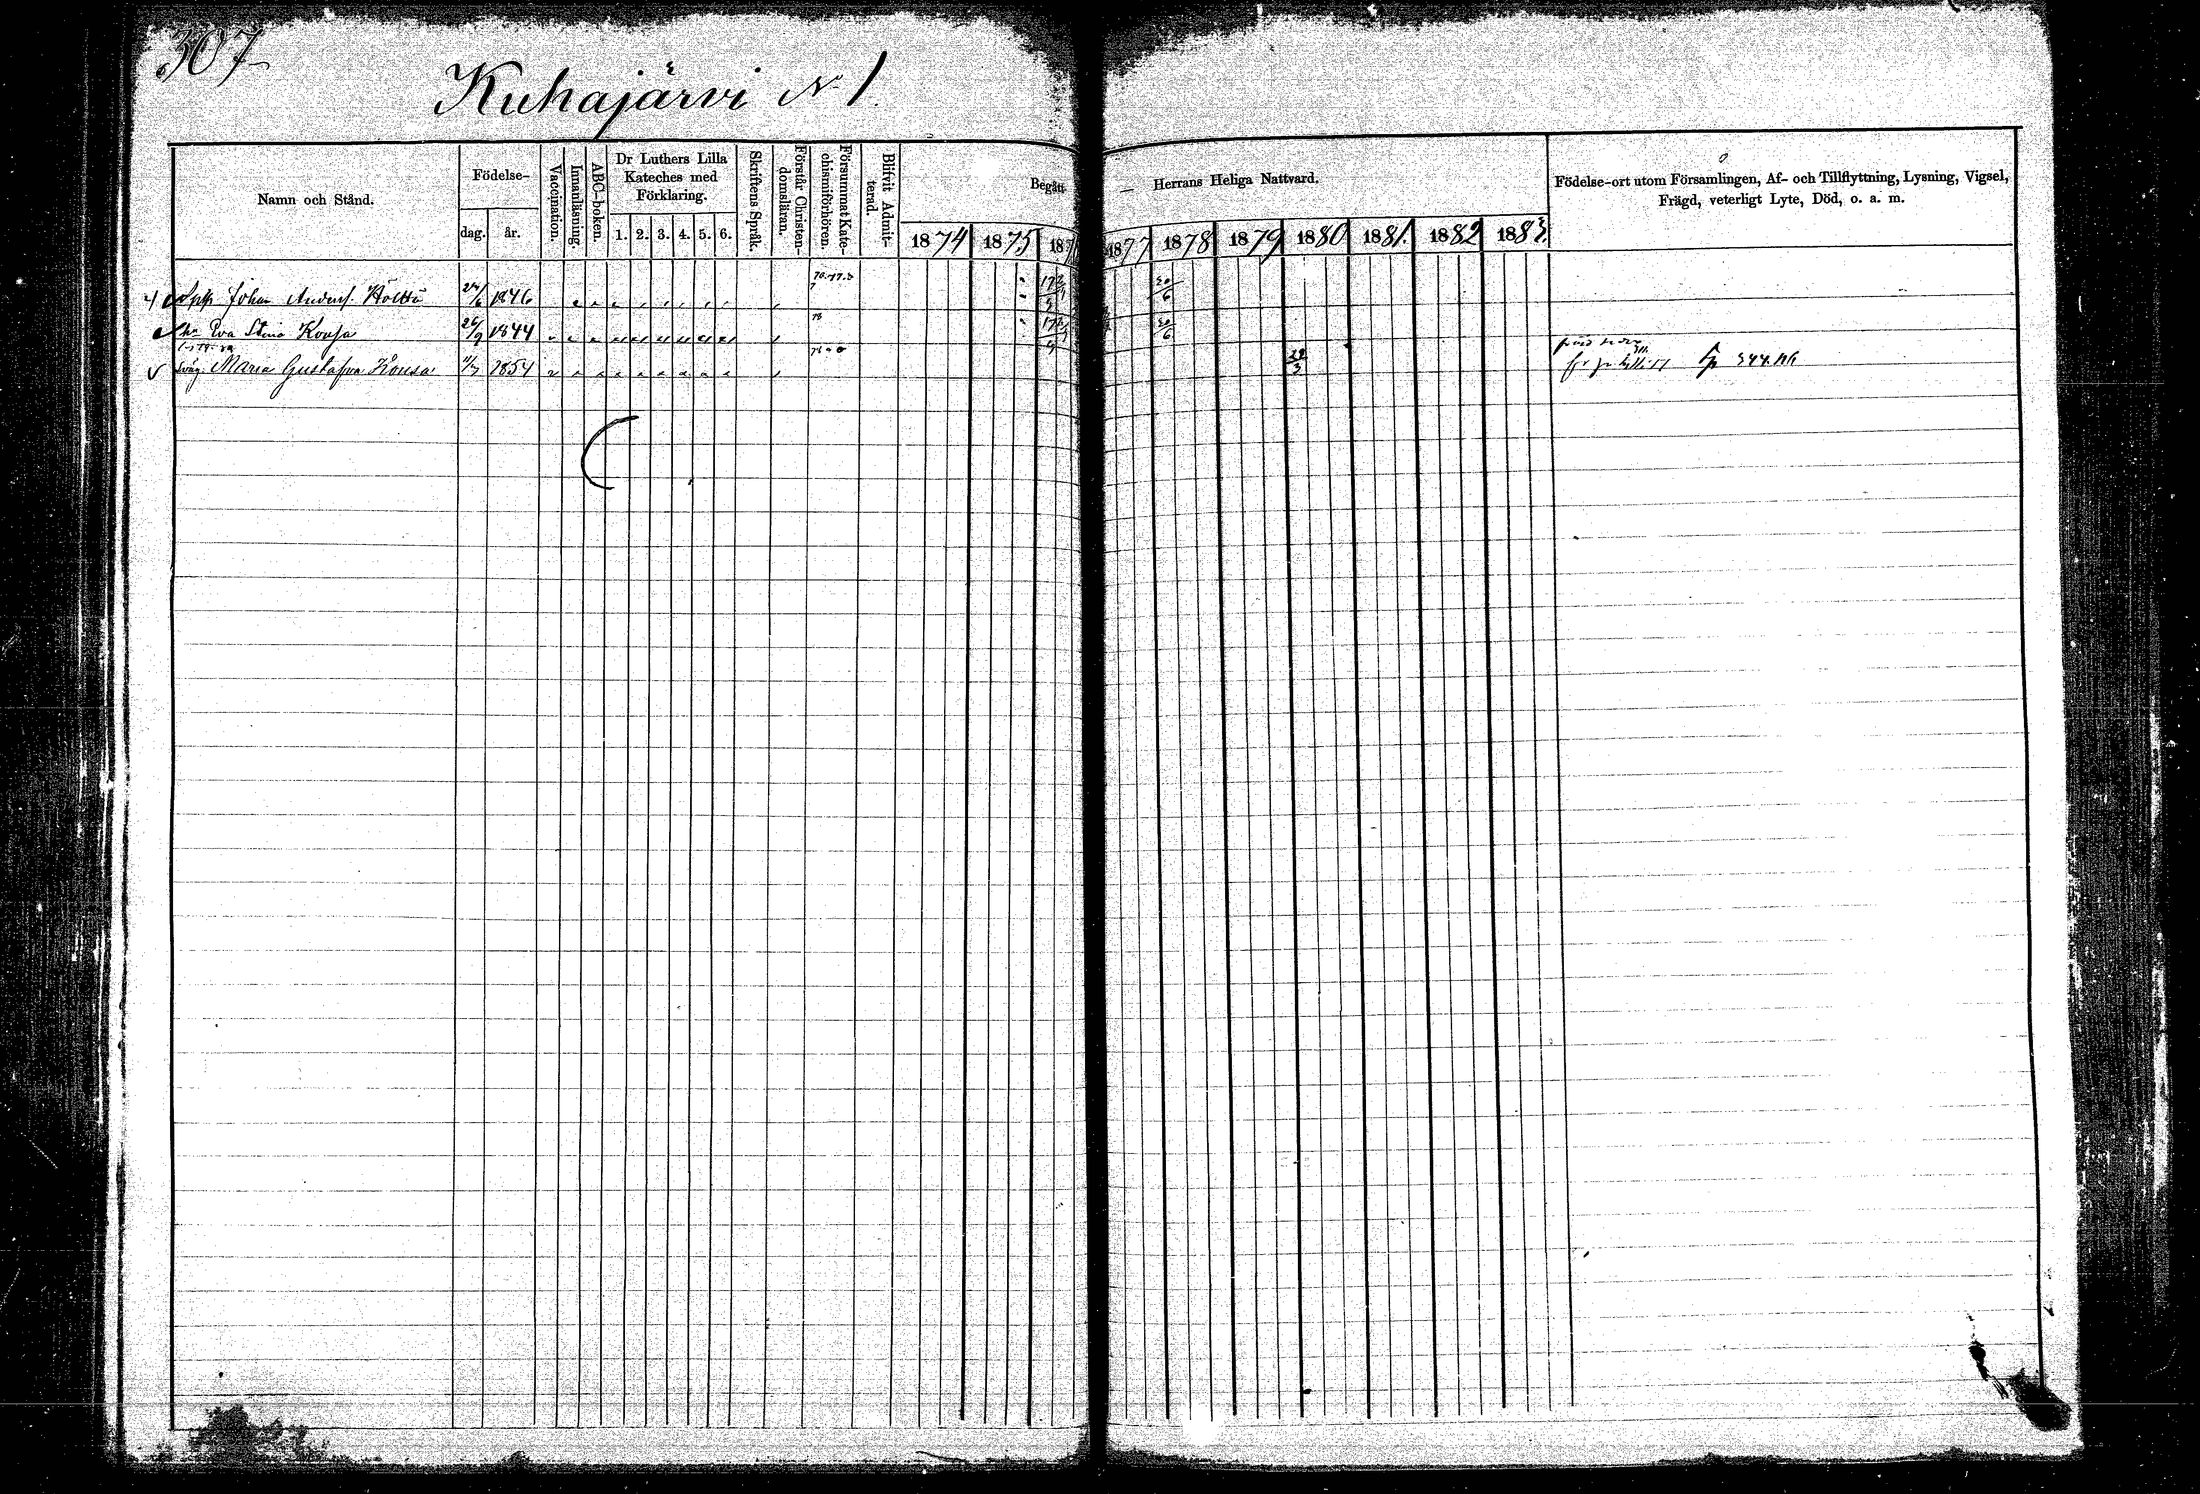 307
Kuhajärvi No 1.
Namn och Stånd.
Födelse-
dag.
år.
Vaccination.
Innanläsning.
ABC-boken.
Dr Luthers Lilla
Kateches med
Förklaring.
1. 2. 3. 4. 5. 6.
Skriftens Språk.
Förstår Christen-
domsläran.
Försummat Kate-
chismiförhören.
Blifvit Admit-
terad.
Begått
Herrans Heliga Nattvard.
1874 1875 187
1877 1878 1879 1880 1881. 1882 1883.
Födelse-ort utom Församlingen, Af- och Tillflyttning, Lysning, Vigsel,
Frägd, veterligt Lyte, Död, o. a. m.
Johan Andersf. Hölttä 24/6 1846 30/6
Eva Stina Kousa 26/9 1844 78 30/6
Maria Gustafva Kousa 11/7 1854 344.